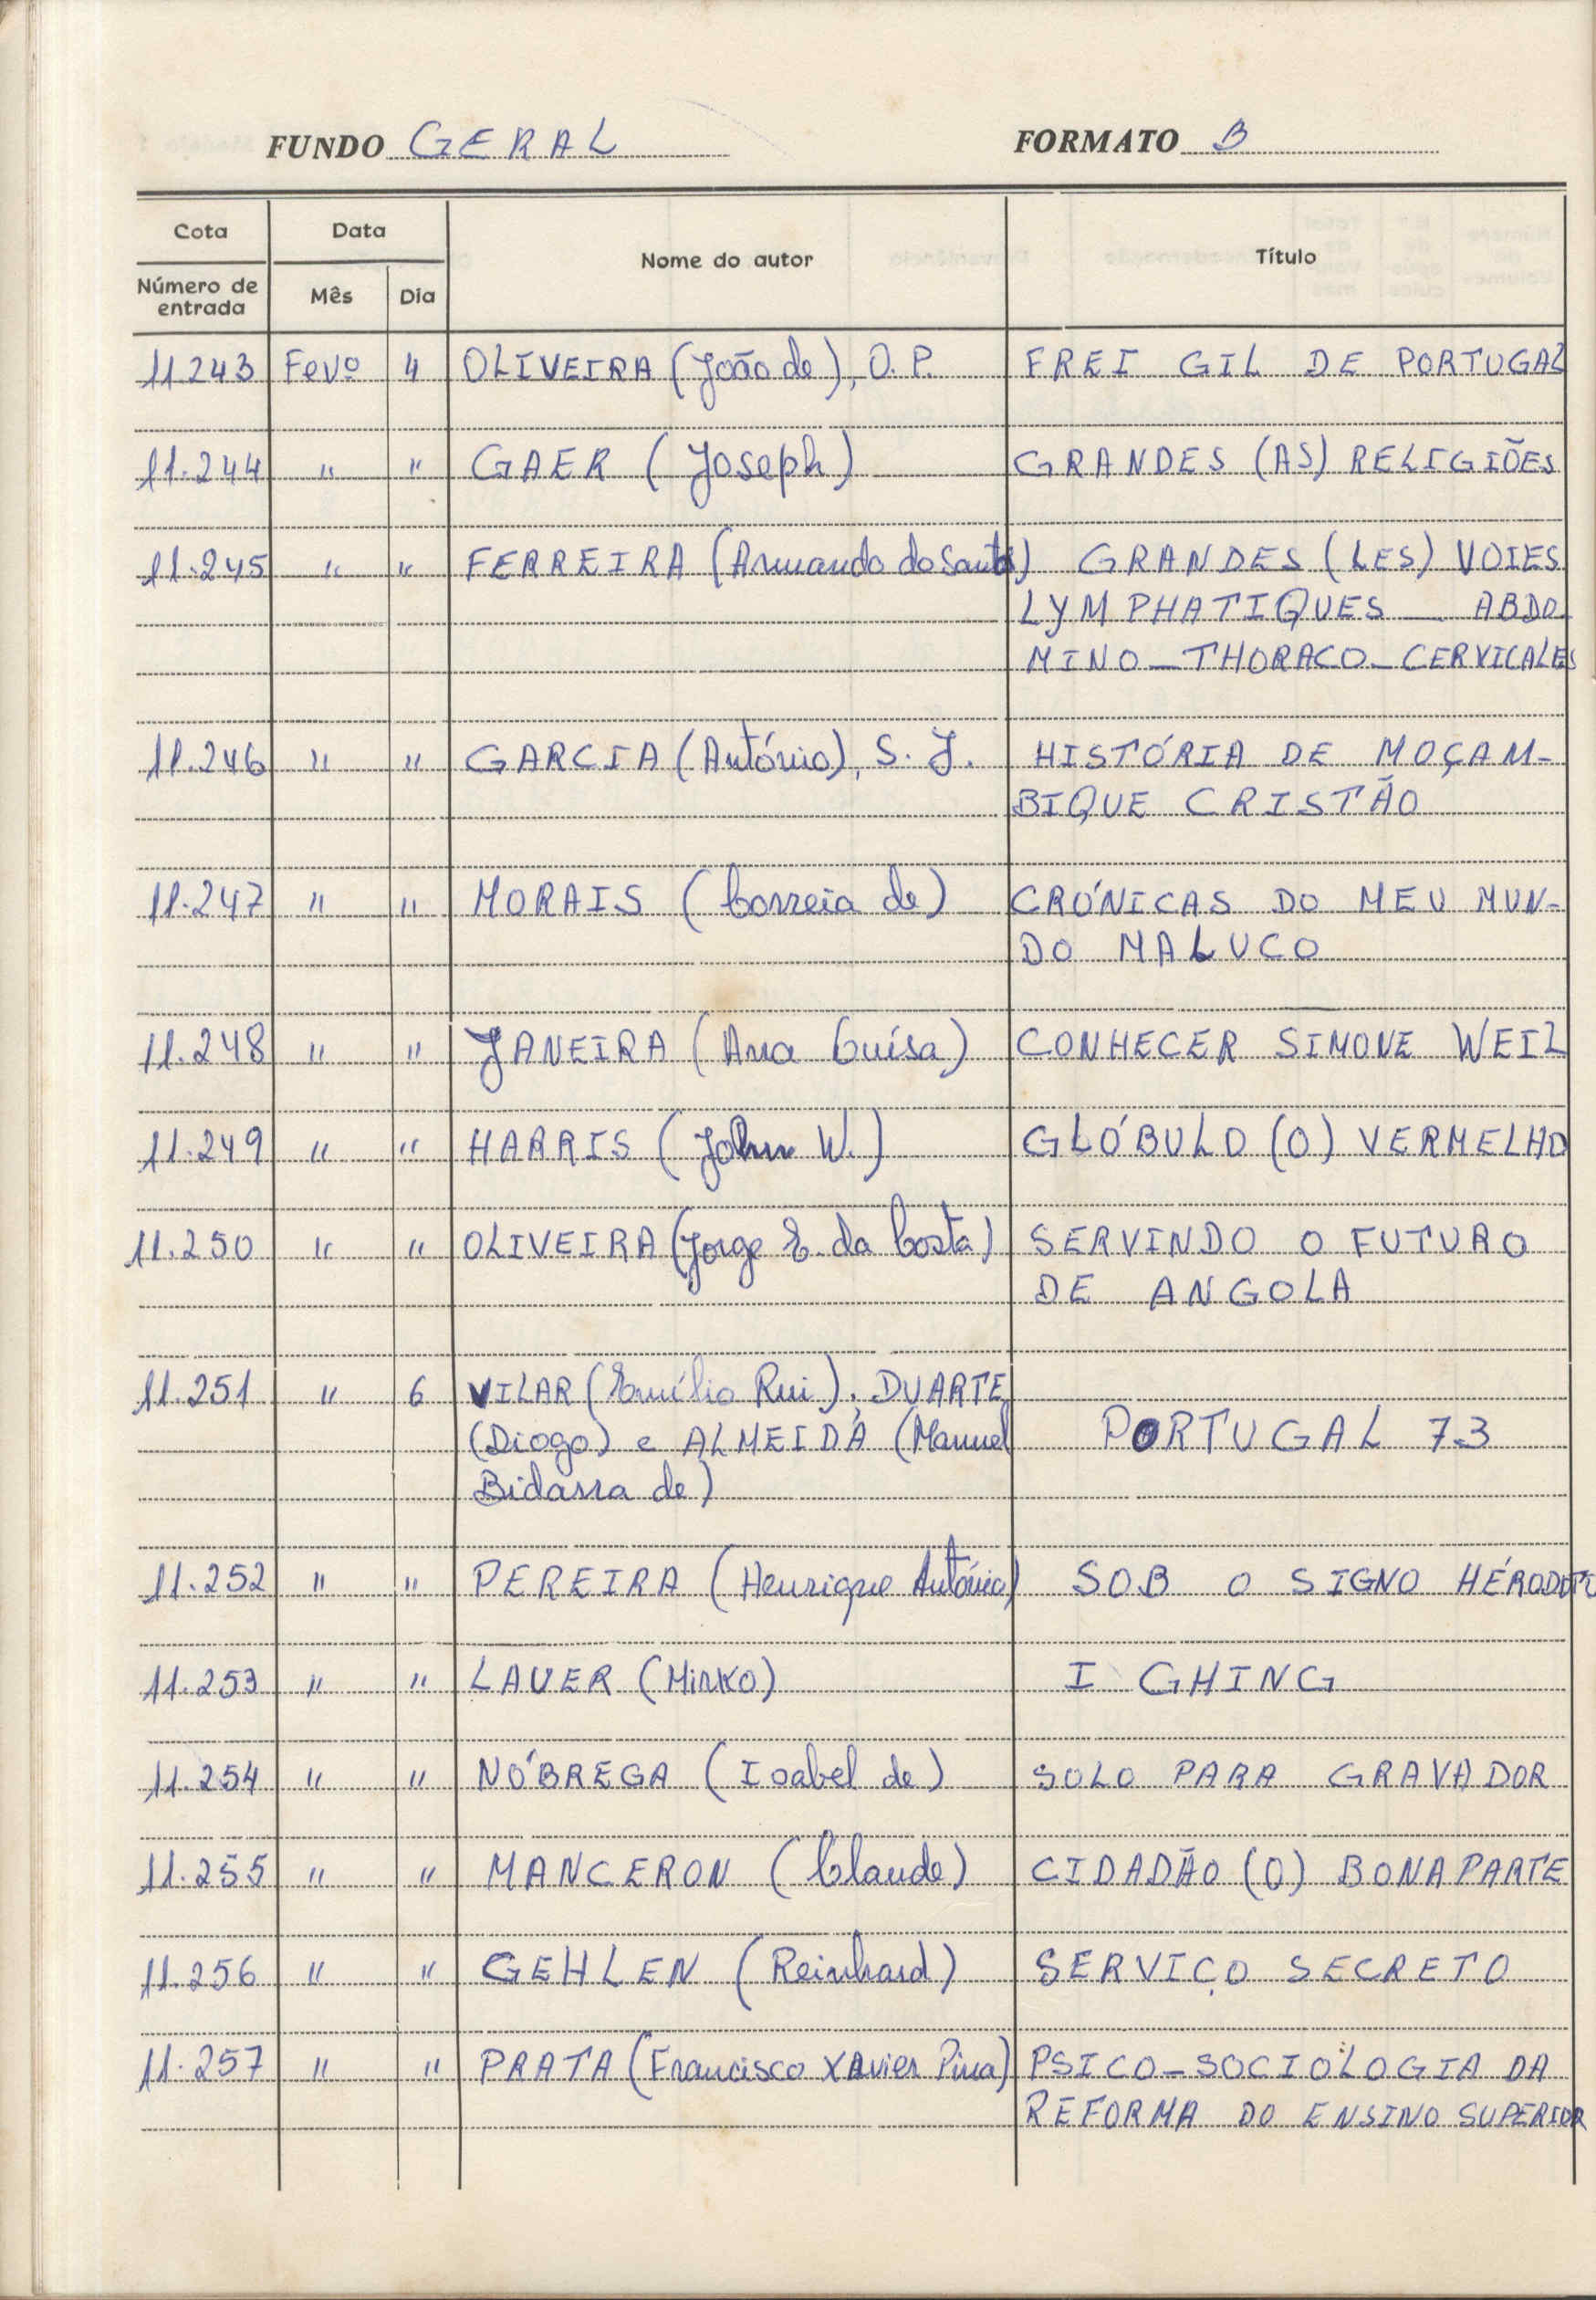 FUNDO GERAL FORMATO B
Cota Data Nome do autor Título
Número de entrada Mês Dia
11243 Fevº 4 OLIVEIRA (João de), O.P. FREI GIL DE PORTUGAL
11.244 " " GAER (Joseph) GRANDES (AS) RELIGIÕES
11.245 " " FERREIRA (Armando do Santos) GRANDES (LES) VOIES
LYMPHATIQUES — ABDO
MINO-THORACO-CERVICALES
11.246 " " GARCIA (António), S. J. HISTÓRIA DE MOÇAM-
BIQUE CRISTÃO
11.247 " " MORAIS (Correia de) CRÓNICAS DO MEU MUN-
DO MALUCO
11.248 " " JANEIRA (Ana Luísa) CONHECER SIMONE WEIL
11.249 " " HARRIS (John W.) GLÓBULO (O) VERMELHO
11.250 " " OLIVEIRA (Jorge E. da Costa) SERVINDO O FUTURO
DE ANGOLA
11.251 " 6 VILAR (Emílio Rui), DUARTE
(Diogo) e ALMEIDA (Manuel PORTUGAL 73
Bidarra de)
11.252 " " PEREIRA (Henrique António) SOB O SIGNO
11.253 " " LAUER (Mirko) I GHING
11.254 " " NÓBREGA (Isabel de) SOLO PARA GRAVADOR
11.255 " " MANCERON (Claude) CIDADÃO (O) BONAPARTE
11.256 " " GEHLEN (Reinhard) SERVIÇO SECRETO
11.257 " " PRATA (Francisco XAvier Pina) PSICO-SOCIOLOGIA DA
REFORMA DO ENSINO SUPERIOR